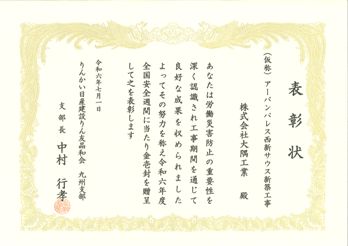 表彰状
(仮称)アーバンパレス西新サウス新築工事
株式会社大隅工業 殿
あなたは労働災害防止の重要性を
深く認識され工事期間を通じて
良好な成果を収められました
よってその努力を称え令和六年度
全国安全週間に当たり金壱封を贈呈
して之を表彰します
令和六年七月一日
りんかい日産建設りん友晶和会 九州支部
支部長 中村 行孝